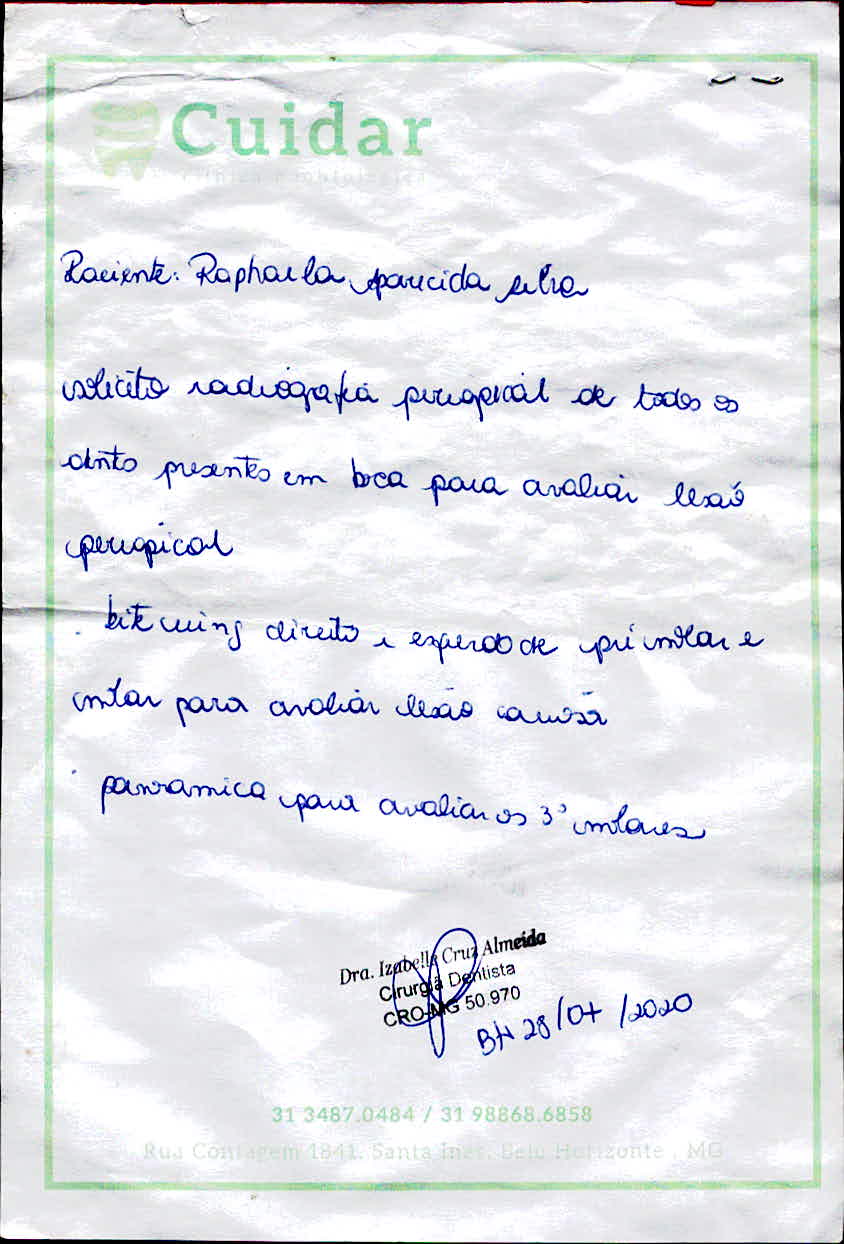 Cuidar
clínica odontológica
Paciente: Raphaela Aparecida silva
solicito radiografia periapical de todos os
dento presentes em boca para avaliar lesão
periapical
. bite wing direito e esquerdo de pré molar e
molar para avaliar lesão cariosa
. panoramica para avaliar os 3° molares
Dra. Izabelle Cruz Almeida
Cirurgiã Dentista
CRO-MG 50.970
BH 28/07/2020
31 3487.0484 / 31 98868.6858
Rua Contagem 1841, Santa Inês, Belo Horizonte , MG